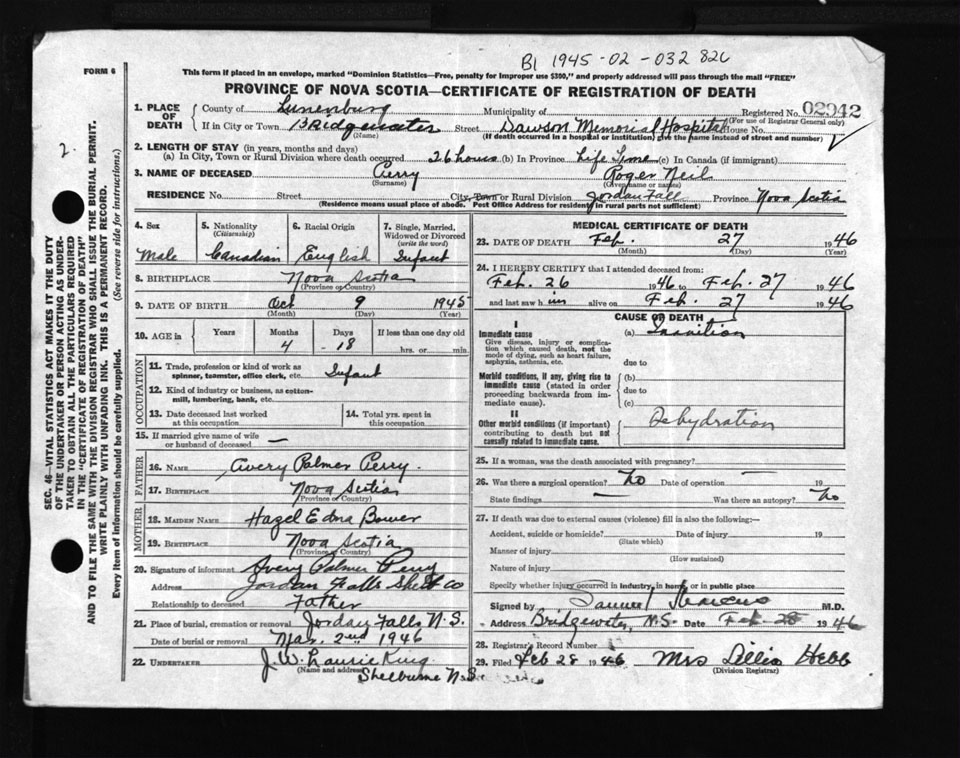 B1 1945-02-032826
FORM 6
This form if placed in an envelope, marked "Dominion Statistics—Free, penalty for improper use $300," and properly addressed will pass through the mail "FREE"
PROVINCE OF NOVA SCOTIA—CERTIFICATE OF REGISTRATION OF DEATH
2.
SEC. 46—VITAL STATISTICS ACT MAKES IT THE DUTY
OF THE UNDERTAKER OR PERSON ACTING AS UNDER-
TAKER TO OBTAIN ALL THE PARTICULARS REQUIRED
IN THE "CERTIFICATE OF REGISTRATION OF DEATH"
AND TO FILE THE SAME WITH THE DIVISION REGISTRAR WHO SHALL ISSUE THE BURIAL PERMIT.
WRITE PLAINLY WITH UNFADING INK. THIS IS A PERMANENT RECORD.
Every item of information should be carefully supplied. (See reverse side for instructions.)
1. PLACE OF DEATH
County of Lunenburg Municipality of Registered No. 02942
(For use of Registrar General only)
If in City or Town Bridgewater Street Dawson Memorial Hospital House No.
(Name) (If death occurred in a hospital or institution, give the name instead of street and number)
2. LENGTH OF STAY (in years, months and days)
(a) In City, Town or Rural Division where death occurred 26 hours (b) In Province Life Time (c) In Canada (if immigrant)
3. NAME OF DECEASED Perry Roger Neil
(Surname) (Given name or names)
RESIDENCE No. Street City, Town or Rural Division Jordan Fall Province Nova Scotia
(Residence means usual place of abode. Post Office Address for residents in rural parts not sufficient)
4. Sex
Male
5. Nationality
(Citizenship)
Canadian
6. Racial Origin
English
7. Single, Married,
Widowed or Divorced
(write the word)
Infant
8. BIRTHPLACE Nova Scotia
(Province or Country)
9. DATE OF BIRTH Oct 9 1945
(Month) (Day) (Year)
10. AGE in Years Months Days If less than one day old
4 18 hrs. or min.
OCCUPATION
11. Trade, profession or kind of work as
spinner, teamster, office clerk, etc. Infant
12. Kind of industry or business, as cotton-
mill, lumbering, bank, etc.
13. Date deceased last worked
at this occupation
14. Total yrs. spent in
this occupation
15. If married give name of wife
or husband of deceased —
FATHER
16. NAME Avery Palmer Perry.
17. BIRTHPLACE Nova Scotia
(Province or Country)
MOTHER
18. MAIDEN NAME Hazel Edna Bower
19. BIRTHPLACE Nova Scotia
(Province or Country)
20. Signature of informant Avery Palmer Perry
Address Jordan Falls Shelb Co
Relationship to deceased Father
21. Place of burial, cremation or removal Jordan Falls N.S.
Date of burial or removal Mar. 2nd 1946
22. UNDERTAKER J. W. Laurie King
(Name and address)
Shelburne N.S.
MEDICAL CERTIFICATE OF DEATH
23. DATE OF DEATH Feb. 27 1946
(Month) (Day) (Year)
24. I HEREBY CERTIFY that I attended deceased from:
Feb. 26 1946 to Feb. 27 1946
and last saw him alive on Feb. 27 1946
CAUSE OF DEATH
I
Immediate cause (a) Inanition
Give disease, injury or complica-
tion which caused death, not the
mode of dying, such as heart failure,
asphyxia, asthenia, etc.
due to
Morbid conditions, if any, giving rise to
immediate cause (stated in order
proceeding backwards from im-
mediate cause).
(b)
due to
(c)
II
Other morbid conditions (if important)
contributing to death but not
causally related to immediate cause.
Dehydration
25. If a woman, was the death associated with pregnancy? —
26. Was there a surgical operation? No Date of operation 19
State findings — Was there an autopsy? No
27. If death was due to external causes (violence) fill in also the following:—
Accident, suicide or homicide? Date of injury 19
(State which)
Manner of injury
(How sustained)
Nature of injury
Specify whether injury occurred in industry, in home or in public place
Signed by Samuel Marcus M.D.
Address Bridgewater, N.S. Date Feb 28 1946
28. Registrar's Record Number
29. Filed Feb 28 1946 Mrs Hebb
(Division Registrar)